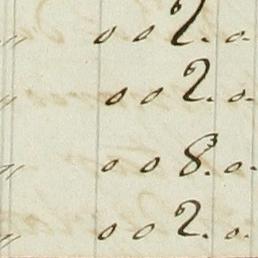 〃 0 0 2. 0.
〃 0 0 2. 0.
〃 0 0 8. 0.
〃 0 0 2. 0.